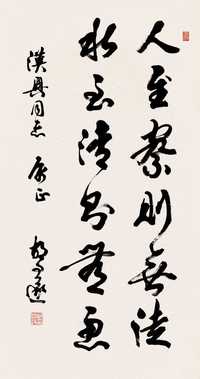 人至察則無徒
水至清則無魚
漢興同志 属正
胡问遂